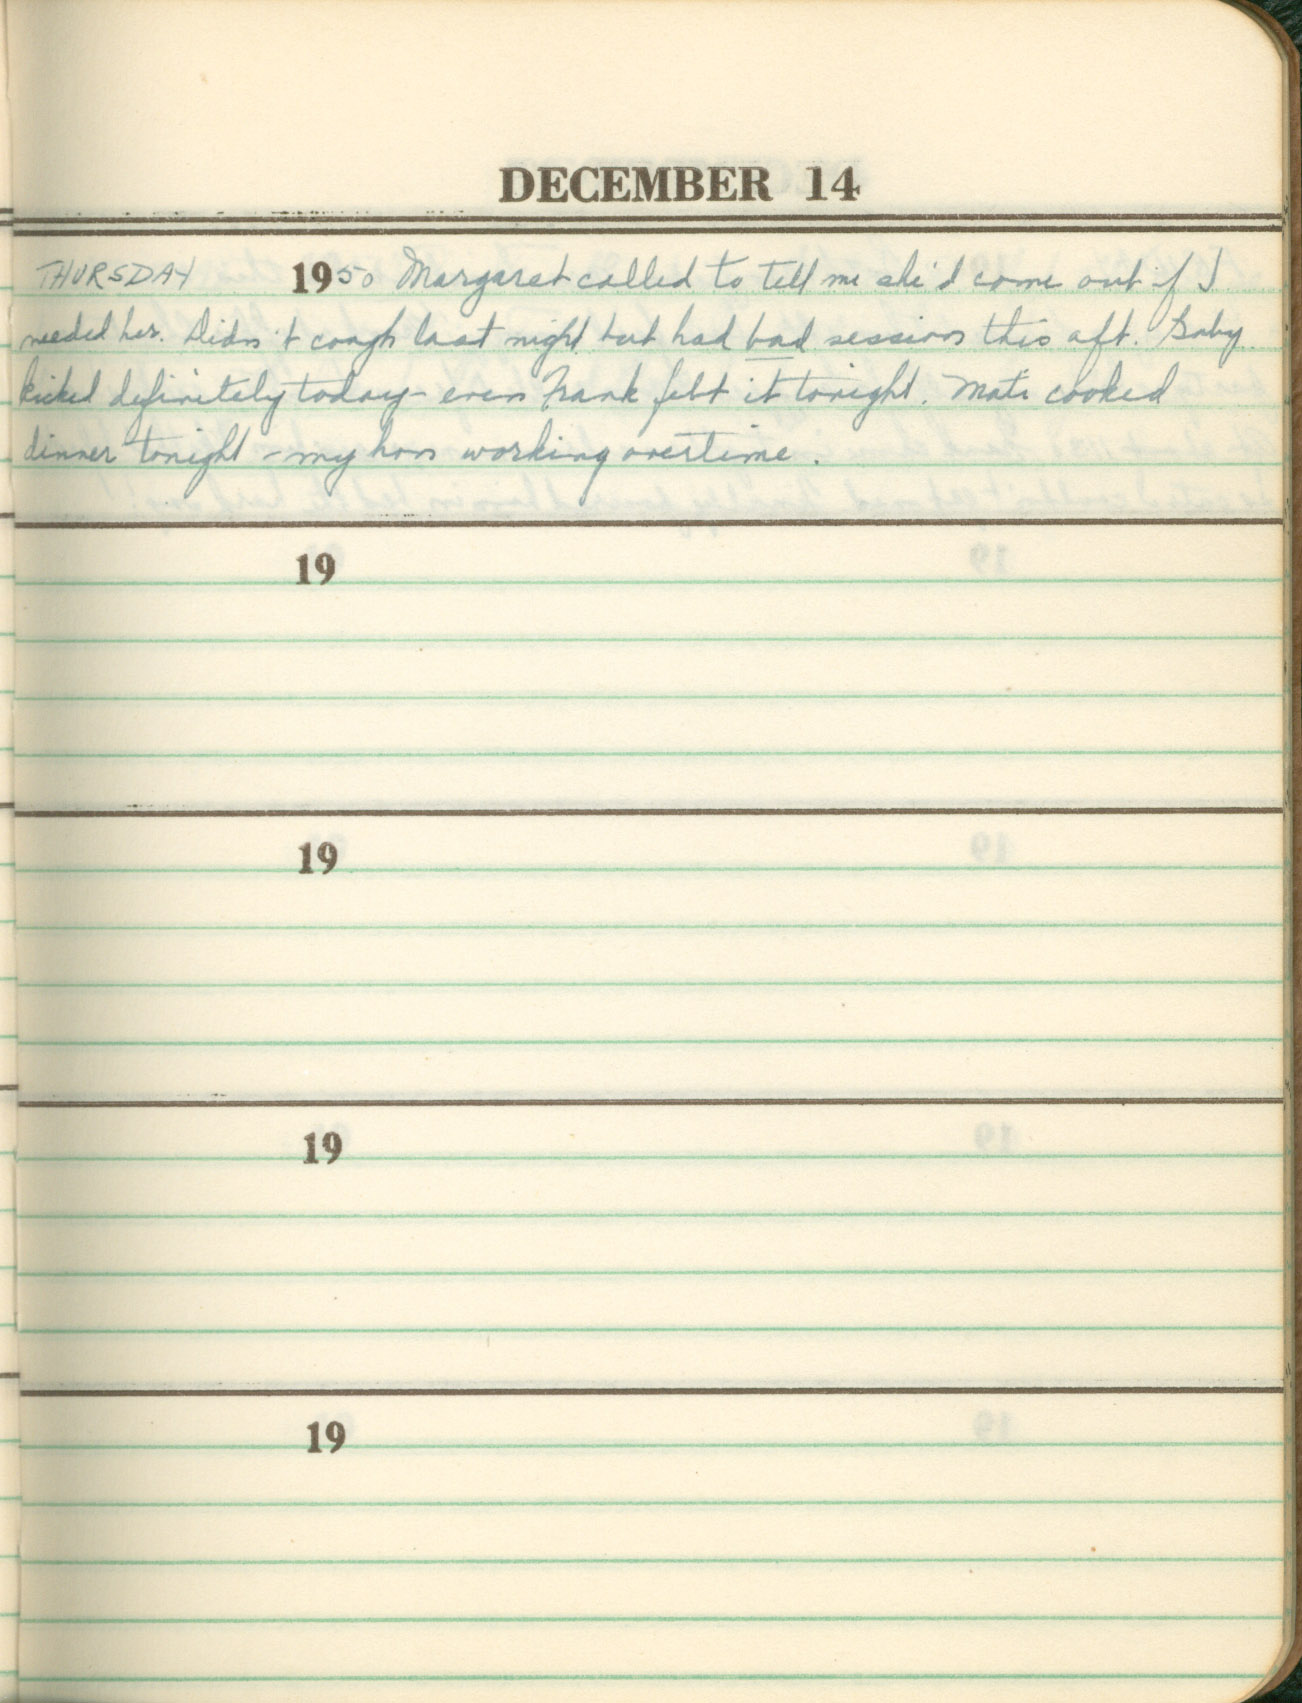 DECEMBER 14
THURSDAY 1950 Margaret called to tell me she'd come out if I
needed her. Didn't cough last night but had bad session this aft. Baby
kicked definitely today - even Frank felt it tonight. Mati cooked
dinner tonight - my hon working overtime.
19
19
19
19